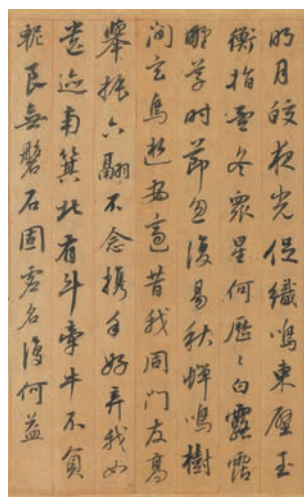 明月皎夜光促織鳴東壁玉
衡指孟冬衆星何歷〻白露霑
野草時節忽復易秋蟬鳴樹
間玄鳥逝安適昔我同門友高
舉振六翮不念携手好弃我如
遺迹南箕北有斗牽牛不負
軛良無磐石固虛名復何益